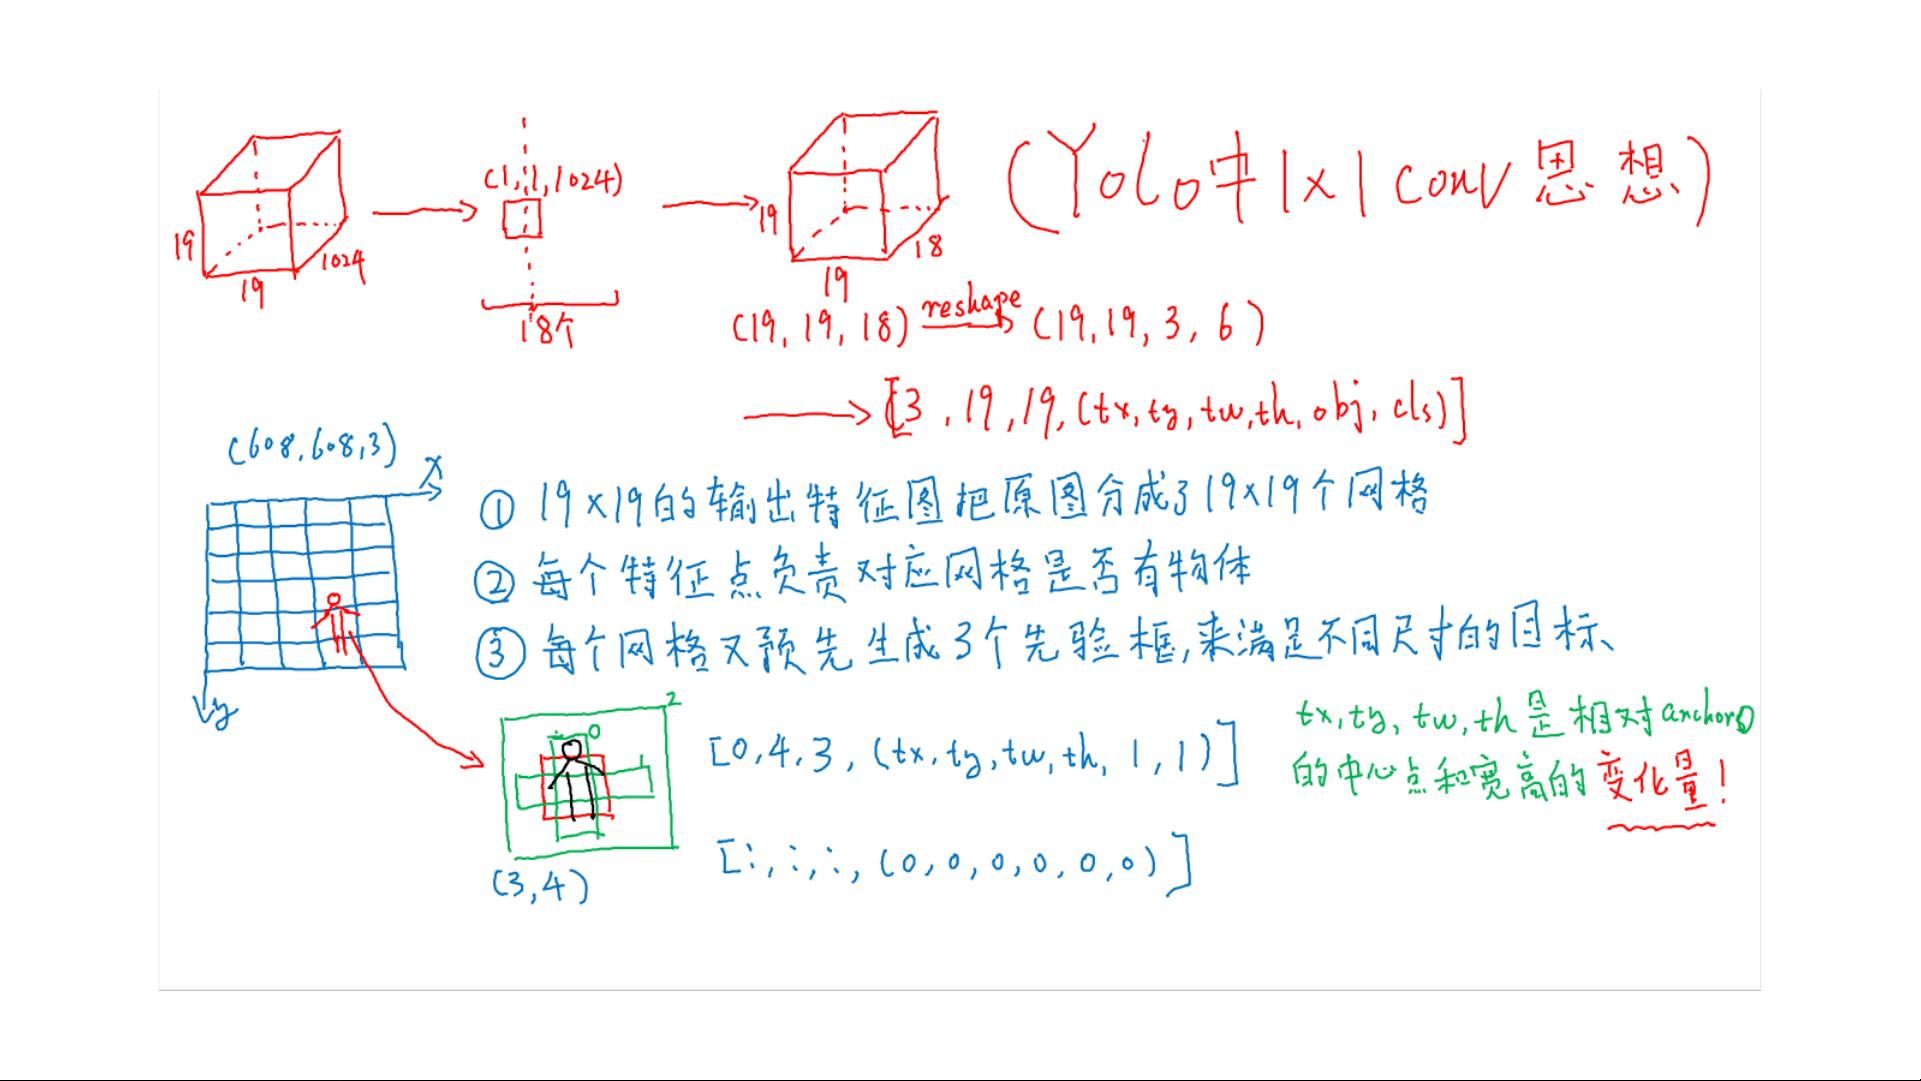 (1,1,1024)
(Yolo中1x1conv思想)
19
19
1024
18个
19
19
18
(19,19,18) reshape (19,19,3,6)
[3,19,19,(tx,ty,tw,th,obj,cls)]
(608,608,3)
x
y
① 19×19的输出特征图把原图分成了19×19个网格
② 每个特征点负责对应网格是否有物体
③ 每个网格又预先生成3个先验框,来满足不同尺寸的目标、
2
0
1
(3,4)
[0,4,3,(tx,ty,tw,th,1,1)]
[:,:,:,(0,0,0,0,0,0)]
tx,ty,tw,th是相对anchor0
的中心点和宽高的变化量!